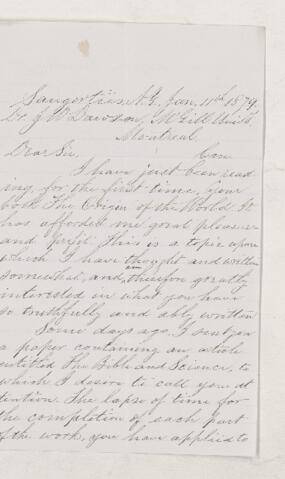 Saugerties N.Y. Jan. 11th 1879.
Dr. J. W. Dawson, McGill Univ.
Montreal.
Can
Dear Sir,
I have just been read
ing, for the first time, your
book The Origin of the World. It
has afforded me great pleasure
and profit. This is a topic upon
which I have thought and written
somewhat, and am therefore greatly
interested in what you have
so truthfully and ably written.
Some days ago I sent you
a paper containing an article
entitled The Bible and Science, to
which I desire to call your at
tention. The lapse of time for
the completion of each part
of the work, you have applied to